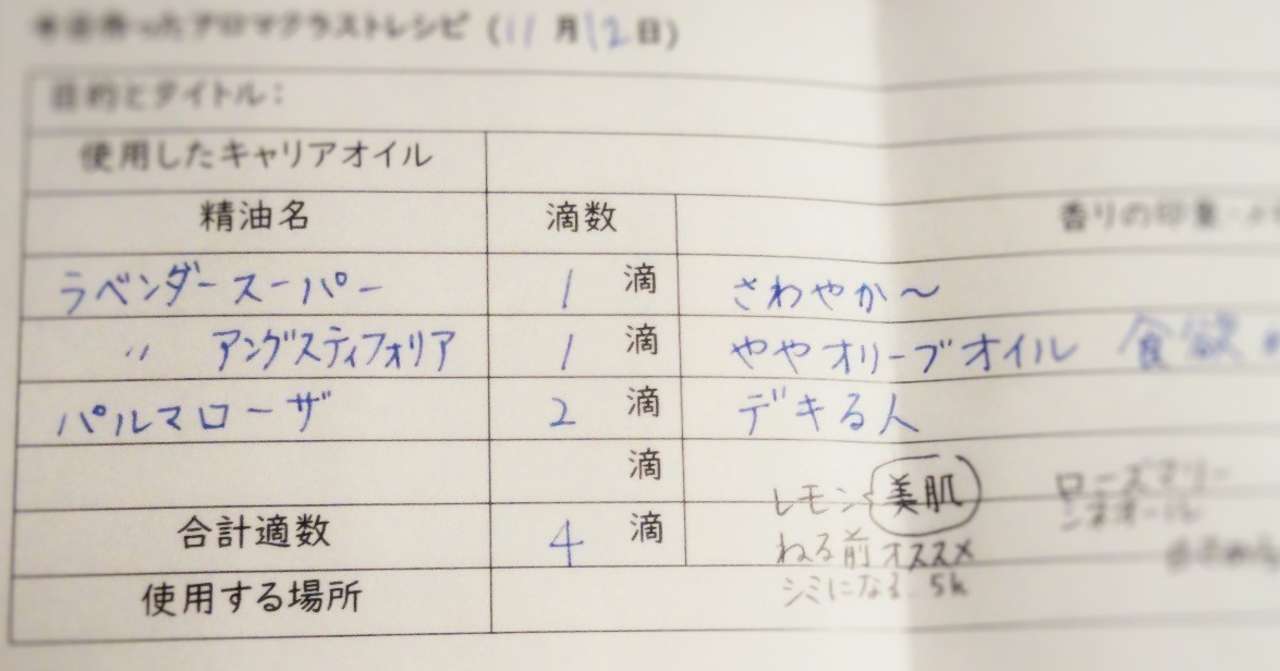 アロマクラストレシピ (11月12日)
目的とタイトル:
使用したキャリアオイル
精油名 滴数 香りの印象・メ
ラベンダースーパー 1 滴 さわやか〜
〃 アングスティフォリア 1 滴 ややオリーブオイル 食欲
パルマローザ 2 滴 デキる人
滴
レモン 美肌 ローズマリー
合計適数 4 滴 シネオール
ねる前オススメ
シミになる 5h
使用する場所